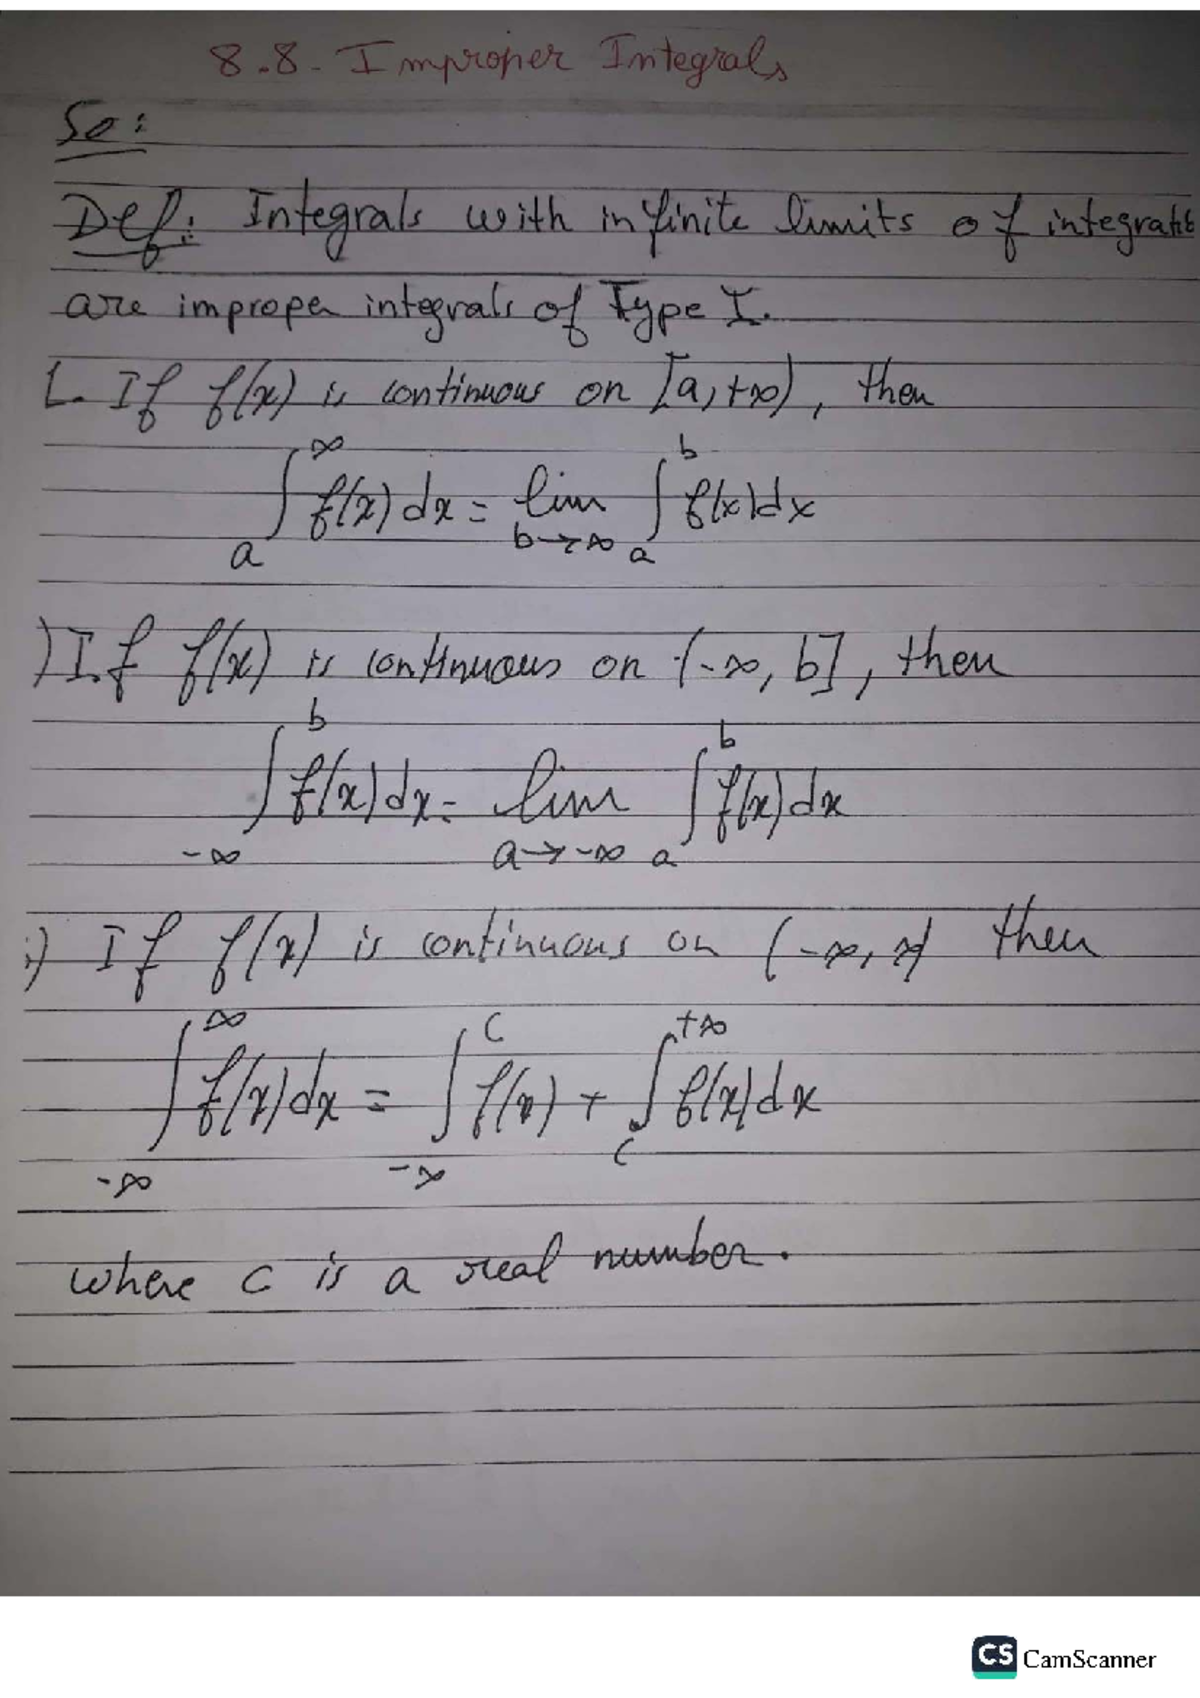 8.8. Improper Integrals
So:
Def: Integrals with infinite limits of integratio
are improper integrals of Type I.
1. If f(x) is continuous on [a, +∞), then
∫_a^∞ f(x) dx = lim_{b→∞} ∫_a^b f(x) dx
) If f(x) is continuous on (-∞, b], then
∫_{-∞}^b f(x) dx = lim_{a→-∞} ∫_a^b f(x) dx
) If f(x) is continuous on (-∞, ∞) then
∫_{-∞}^∞ f(x) dx = ∫_{-∞}^c f(x) + ∫_c^{+∞} f(x) dx
where c is a real number.
CS CamScanner